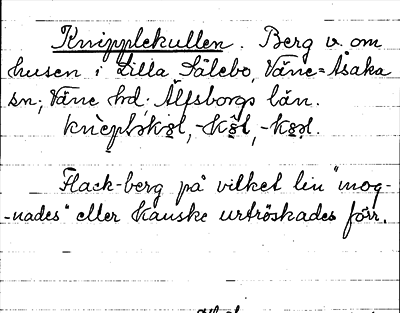 Knipplekullen. Berg v. om
husen i Lilla Sålebo, Väne=Åsaka
sn; Väne hd. Älfsborgs län.
Flack-berg på vilket lin "mog-
-nades" eller kanske urtröskades förr.